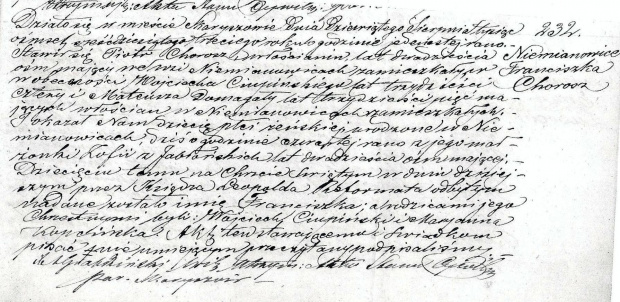 Działo się w mieście Maryszowie Dnia Dziewiątego Sierpnia tysiąc
ośmset sześćdziesiątego trzeciego roku o godzinie jedenastej rano.
Stawił się Piotr Chorosz włościanin, lat dwadzieścia
ośm mający, we wsi Niemianowicach zamieszkały w
obecności Wojciecha Ciupińskiego lat trzydzieści
cztery i Mateusza Damagały lat trzydzieści pięć ma-
jących włościan w Niemianowicach zamieszkałych,
okazał Nam dziecię płci żeńskiej urodzone w Nie-
mianowicach, dziś o godzinie czwartej rano z jego mał-
żonki Zofii z Jabłońskich lat dwadzieścia ośm mającej.
Dziecięciu temu na Chrzcie Świętym w dniu dzisiej-
szym przez Księdza Leopolda Reformata odbytym
nadane zostało imię Franciszka, a rodzicami jego
Chrzestnymi byli: Wojciech Ciupiński i Maryanna
Kończińska. Akt ten stawającemu i świadkom
pisać nie umiejącym przeczytany podpisaliśmy
Akta Stanu
par.
232.
Niemianowice
Franciszka
Chorosz